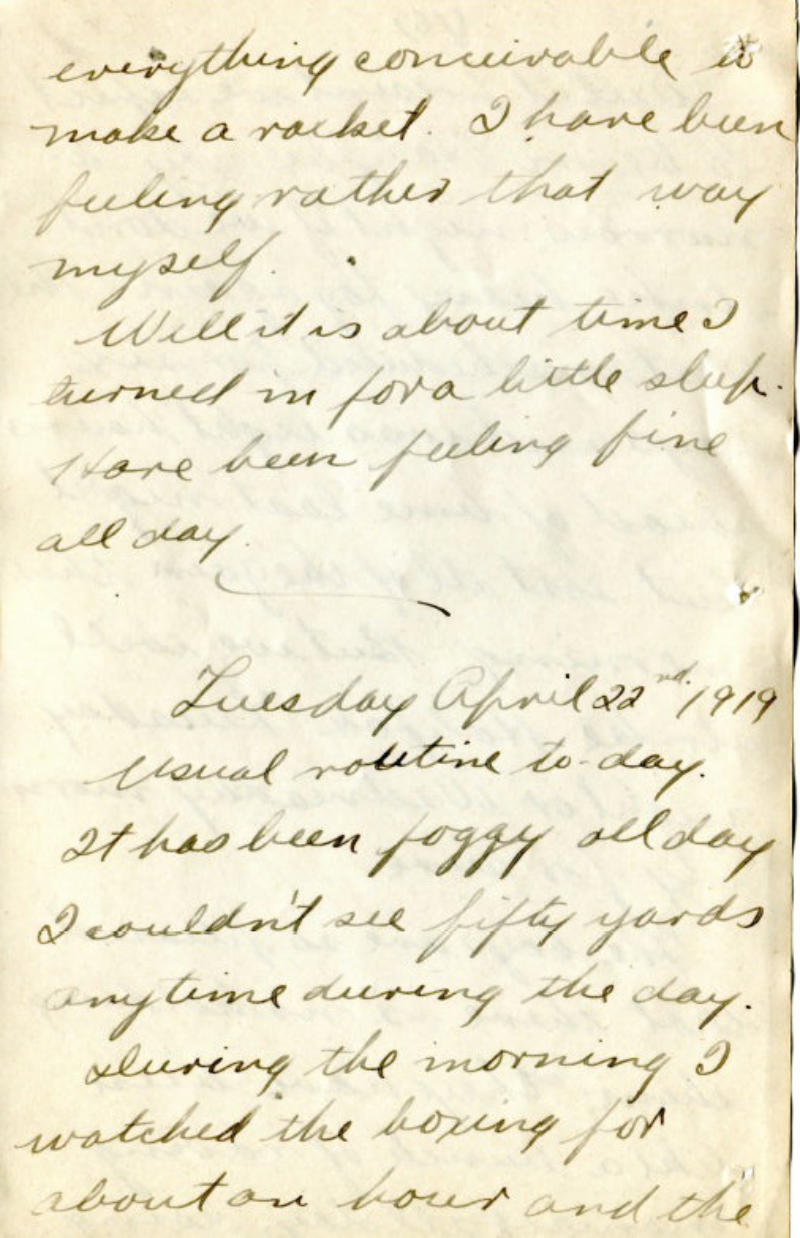 everything conceivable to
make a racket. I have been
feeling rather that way
myself.
Well it is about time I
turned in for a little sleep.
Have been feeling fine
all day.
Tuesday April 22nd. 1919
Usual routine to-day.
It has been foggy all day
I couldn't see fifty yards
anytime during the day.
During the morning I
watched the boxing for
about an hour and the